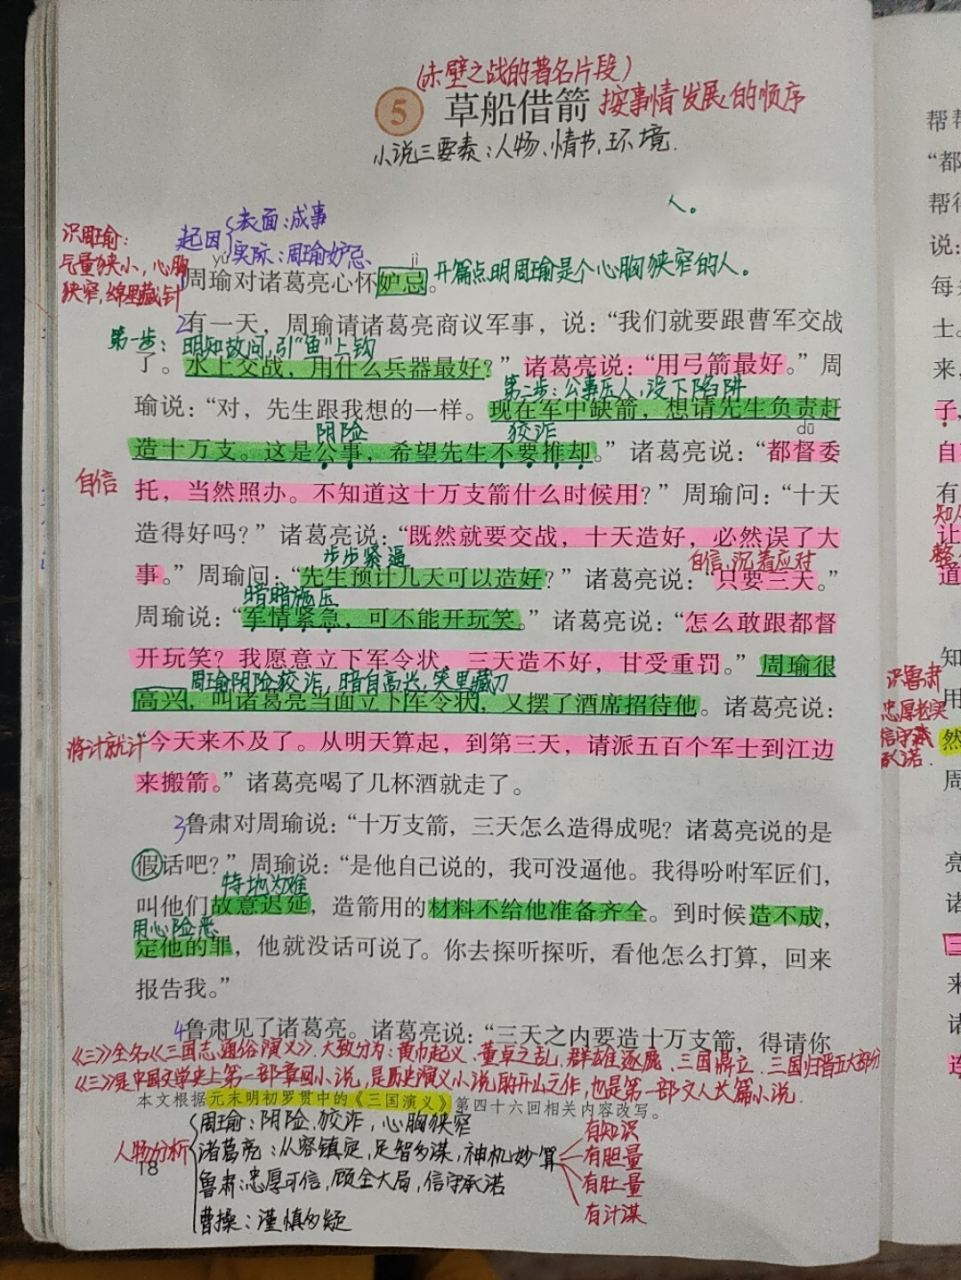 (赤壁之战的著名片段)
5 草船借箭 按事情发展的顺序
小说三要素:人物、情节、环境.
人。
识周瑜:
气量狭小,心胸
狭窄,绵里藏针
起因
表面:成事
实际:周瑜妒忌
yǔ jì
开篇点明周瑜是个心胸狭窄的人。
1周瑜对诸葛亮心怀妒忌。
2有一天,周瑜请诸葛亮商议军事,说:“我们就要跟曹军交战
第一步:明知故问,引“鱼”上钩
了。水上交战,用什么兵器最好?”诸葛亮说:“用弓箭最好。”周
第二步:公事压人,设下陷阱
瑜说:“对,先生跟我想的一样。现在军中缺箭,想请先生负责赶
阴险 狡诈 dū
造十万支。这是公事,希望先生不要推却。”诸葛亮说:“都督委
自信
托,当然照办。不知道这十万支箭什么时候用?”周瑜问:“十天
造得好吗?”诸葛亮说:“既然就要交战,十天造好,必然误了大
步步紧逼 自信,沉着应对
事。”周瑜问:“先生预计几天可以造好?”诸葛亮说:“只要三天。”
暗暗施压
周瑜说:“军情紧急,可不能开玩笑。”诸葛亮说:“怎么敢跟都督
开玩笑?我愿意立下军令状,三天造不好,甘受重罚。”周瑜很
周瑜阴险狡诈,暗自高兴,笑里藏刀
高兴,叫诸葛亮当面立下军令状,又摆了酒席招待他。诸葛亮说:
将计就计
“今天来不及了。从明天算起,到第三天,请派五百个军士到江边
来搬箭。”诸葛亮喝了几杯酒就走了。
3鲁肃对周瑜说:“十万支箭,三天怎么造得成呢?诸葛亮说的是
假话吧?”周瑜说:“是他自己说的,我可没逼他。我得吩咐军匠们,
特地为难
叫他们故意迟延,造箭用的材料不给他准备齐全。到时候造不成,
用心险恶
定他的罪,他就没话可说了。你去探听探听,看他怎么打算,回来
报告我。”
4鲁肃见了诸葛亮。诸葛亮说:“三天之内要造十万支箭,得请你
《三》全名《三国志通俗演义》.大致分为:黄巾起义、董卓之乱、群雄逐鹿、三国鼎立、三国归晋五大部分
《三》是中国文学史上第一部章回小说,是历史演义小说的开山之作,也是第一部文人长篇小说.
本文根据元末明初罗贯中的《三国演义》第四十六回相关内容改写。
人物分析
周瑜:阴险、狡诈,心胸狭窄
诸葛亮:从容镇定,足智多谋,神机妙算
有知识
有胆量
有肚量
有计谋
鲁肃:忠厚可信,顾全大局,信守承诺
曹操:谨慎多疑
18
帮
“都
帮得
说:
每
士。
来,
子,
自
有
知
让
整
道
知
识鲁肃
忠厚老实
信守承
诺.
用
然
周
亮
诸
三
来
诸
连